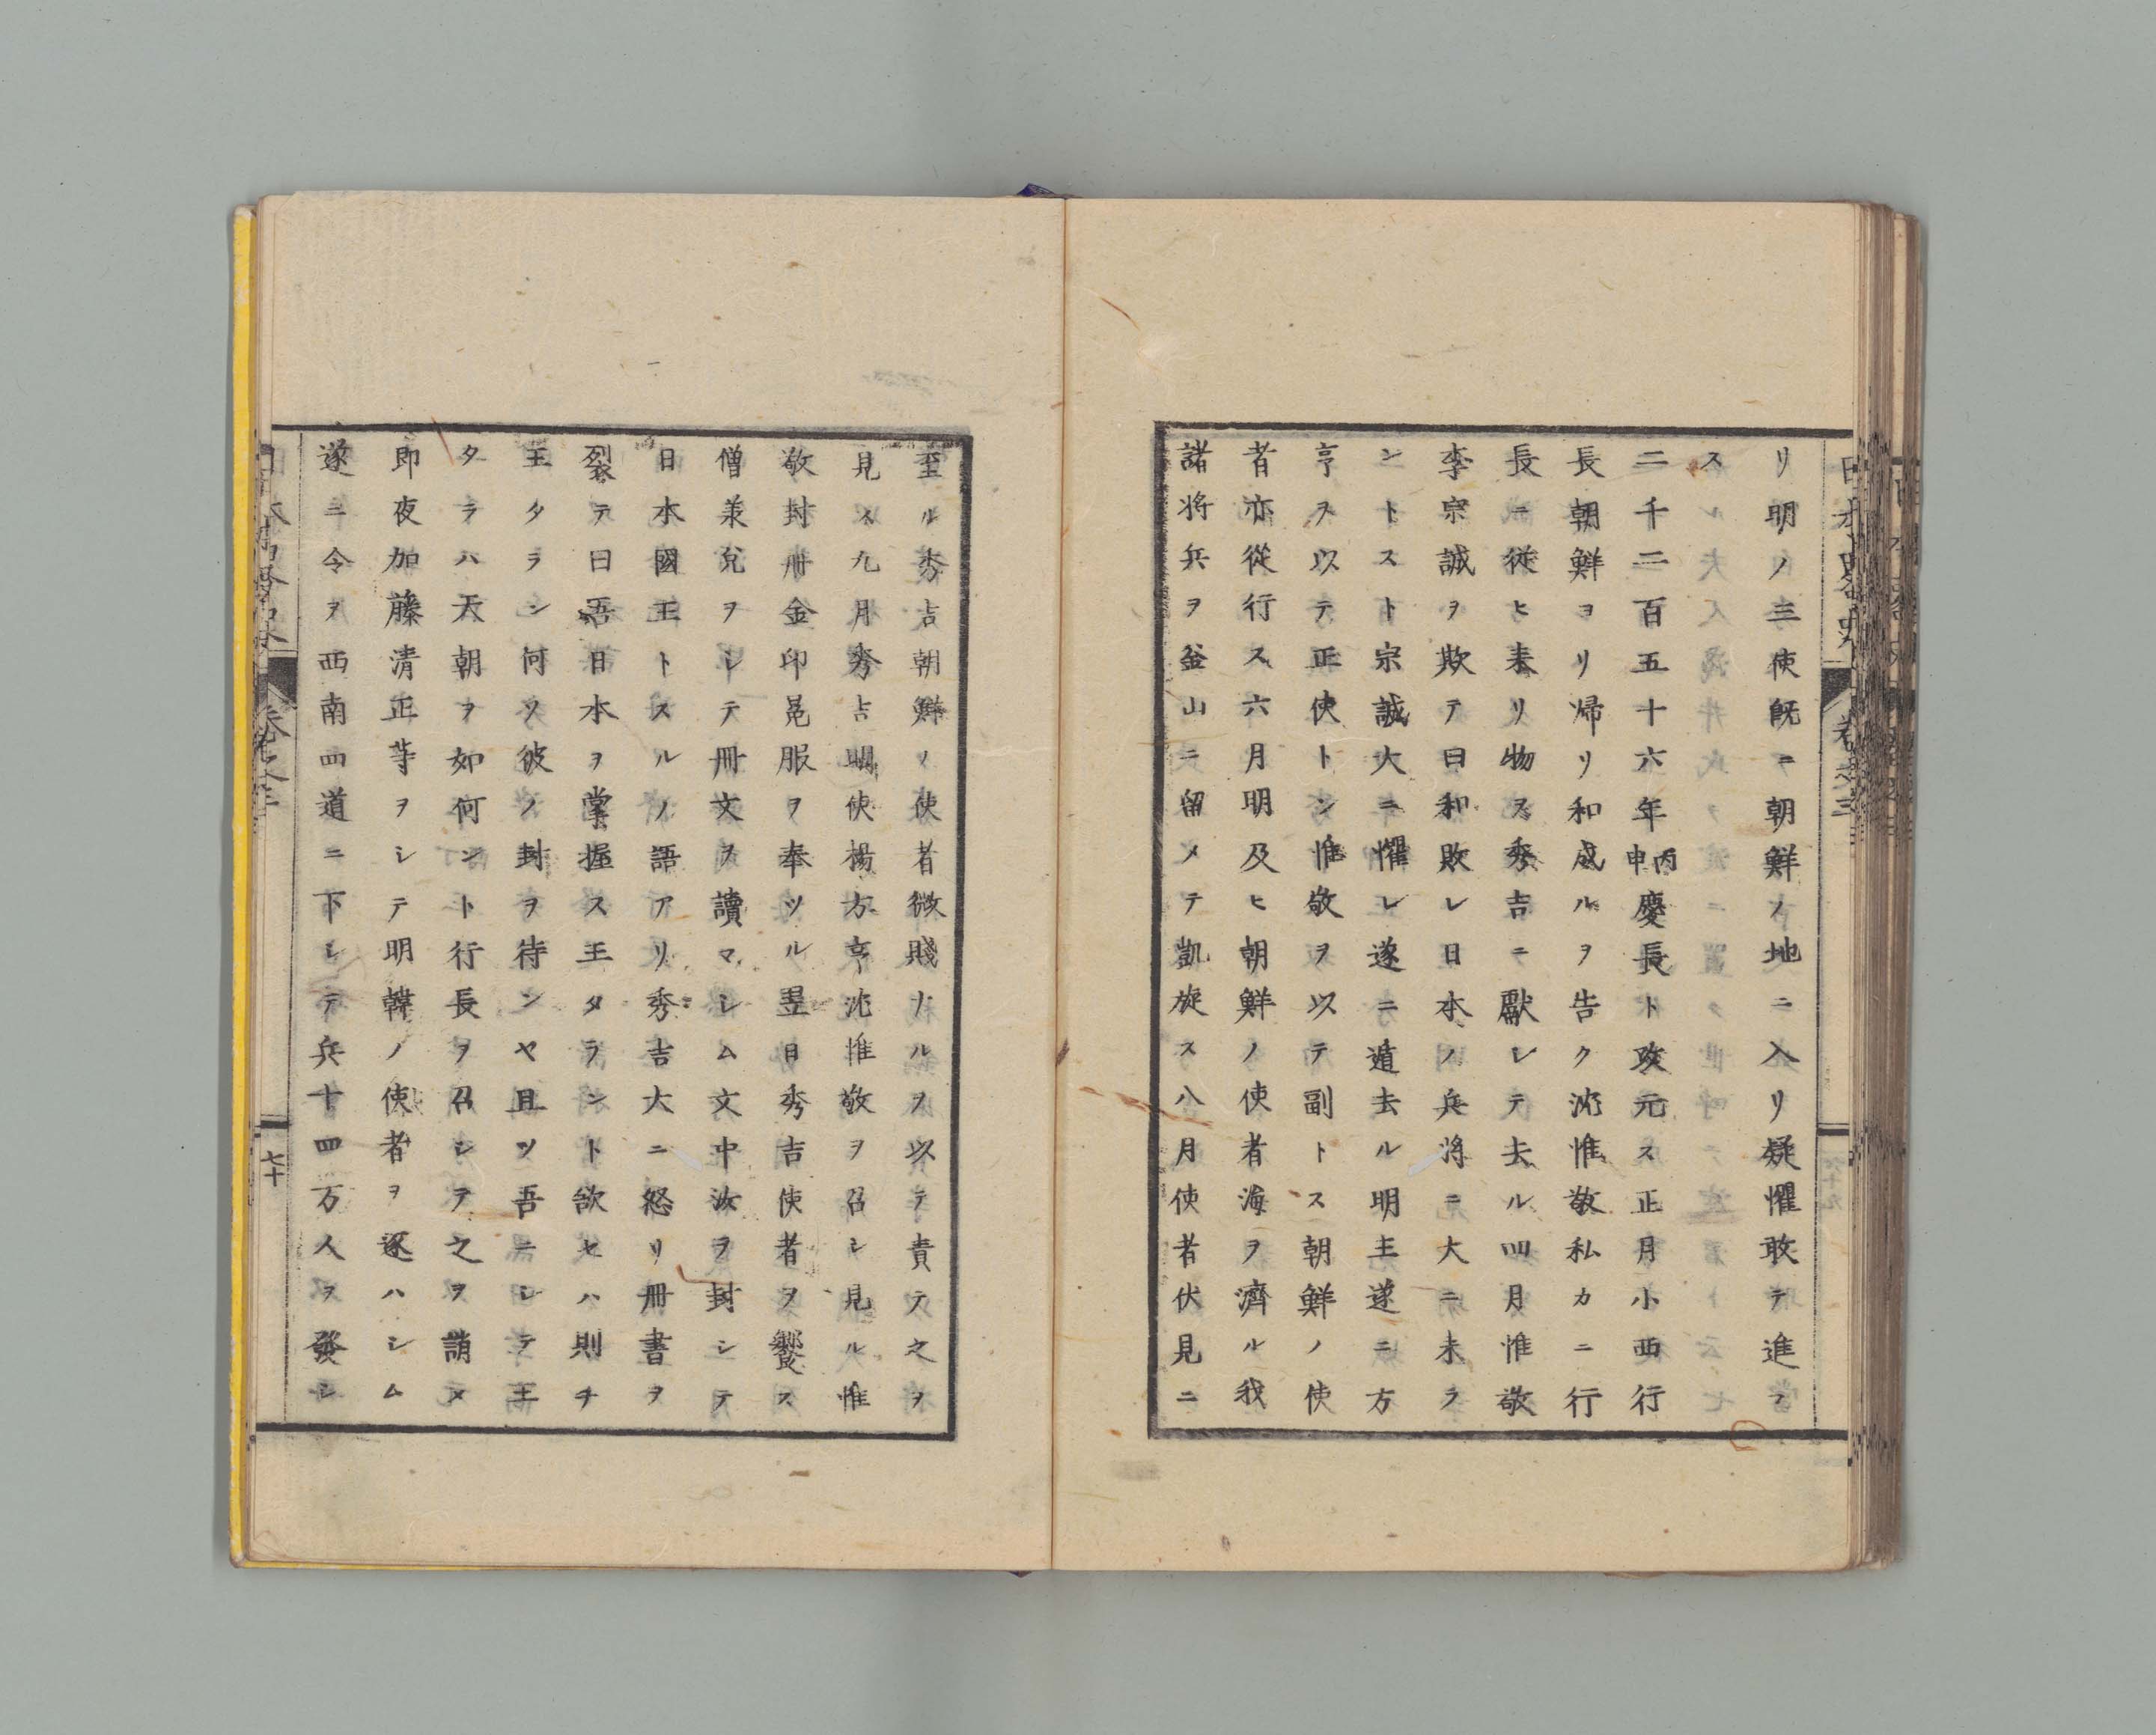 リ明ノ三使既ニ朝鮮ノ地ニ入リ疑懼敢テ進マ
ス
二千二百五十六年丙申慶長ト改元ス正月小西行
長朝鮮ヨリ帰リ和成ルヲ告ク沈惟敬私カニ行
長ニ従ヒ来リ物ヲ秀吉ニ獻シテ去ル四月惟敬
李宗誠ヲ欺テ曰和敗レ日本ノ兵将ニ大ニ来ラ
ントスト宗誠大ニ懼レ遂ニ遁去ル明主遂ニ方
亨ヲ以テ正使トシ惟敬ヲ以テ副トス朝鮮ノ使
者亦從行ス六月明及ヒ朝鮮ノ使者海ヲ濟ル我
諸将兵ヲ釜山ニ留メテ凱旋ス八月使者伏見ニ
至ル秀吉朝鮮ノ使者微賤ナルヲ以テ責テ之ヲ
見ス九月秀吉明使楊方亨沈惟敬ヲ召シ見ル惟
敬封冊金印冕服ヲ奉ツル翌日秀吉使者ヲ饗ス
僧兼兌ヲシテ冊文ヲ讀マシム文中汝ヲ封シテ
日本國王トスルノ語アリ秀吉大ニ怒リ冊書ヲ
裂テ曰吾日本ヲ掌握ス王タラント欲セハ則チ
王タラン何ソ彼ノ封ヲ待ンヤ且ツ吾ニシテ王
タラハ天朝ヲ如何ント行長ヲ召シテ之ヲ誚メ
即夜加藤清正等ヲシテ明韓ノ使者ヲ逐ハシム
遂ニ令ヲ西南四道ニ下シテ兵十四万人ヲ發シ
七十